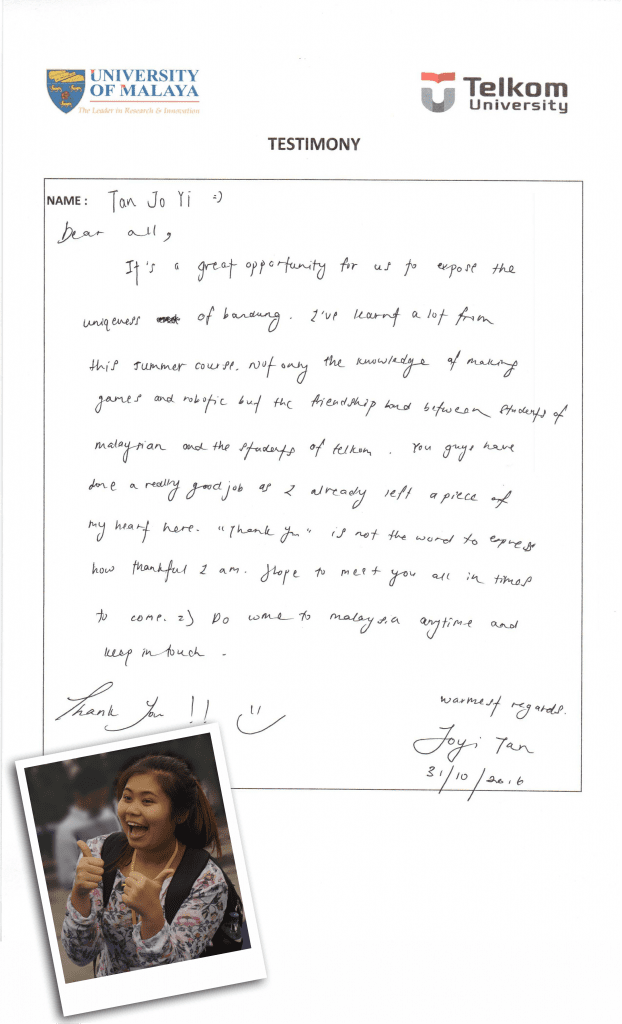 UNIVERSITY
OF MALAYA
The Leader in Research & Innovation
Telkom
University
TESTIMONY
NAME : Tan Jo Yi =)
Dear all,
It's a great opportunity for us to expose the
uniqueness of bandung. I've learnt a lot from
this summer course. Not only the knowledge of making
games and robotic but the friendship bond between students of
malaysian and the students of telkom. You guys have
done a really good job as I already left a piece of
my heart here. "Thank You" is not the word to express
how thankful I am. Hope to meet you all in times
to come. =) Do come to malaysia anytime and
keep in touch.
Thank You !!
warmest regards.
Joyi Tan
31/10/2016